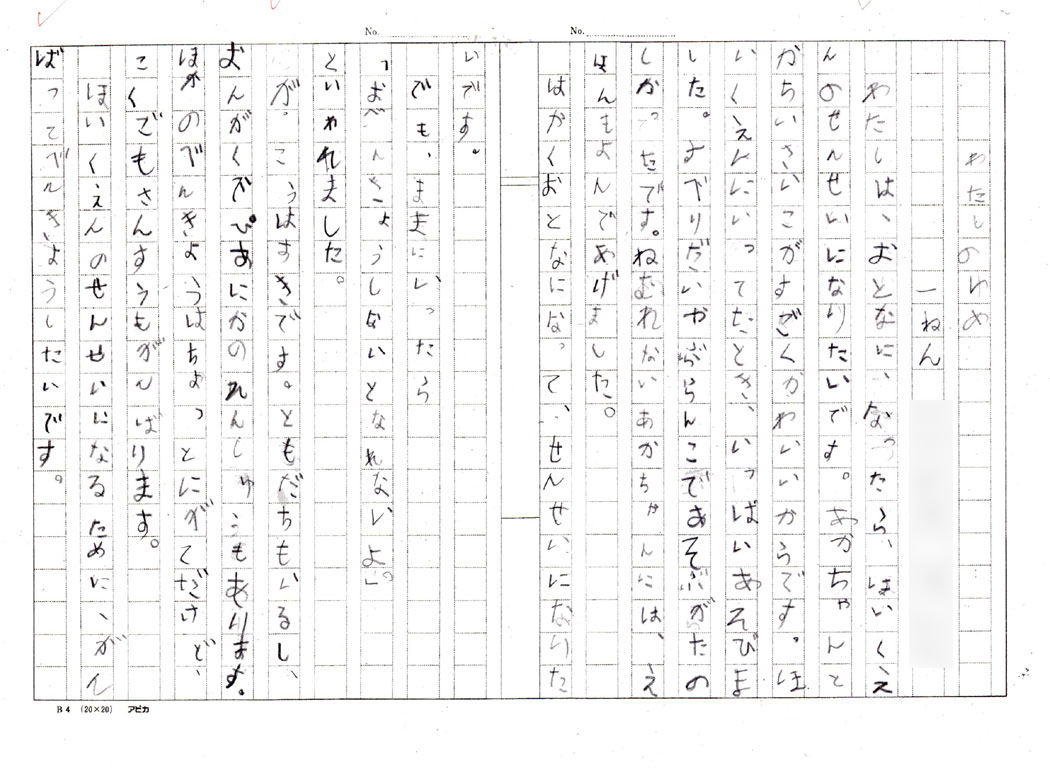 No.
No.
わたしのゆめ
一ねん
わたしは、おとなに、なったら、ほいくえ
んのせんせいになりたいです。あかちゃんと
かちいさいこがすごくかわいいからです。ほ
いくえんにいってたとき、いっぱいあそびま
した。すべりだいやぶらんこであそぶがたの
しかったです。ねむれないあかちゃんには、え
ほんもよんであげました。
はやくおとなになって、せんせいになりた
いです。
でも、ままにいったら
「おべんきょうしないとなれないよ。」
といわれました。
がっこうはすきです。ともだちもいるし、
おんがくでぴあにかのれんしゅうもあります。
ほかのべんきょうはちょっとにがてだけど、
こくごもさんすうもがんばります。
ほいくえんのせんせいになるために、がん
ばってべんきょうしたいです。
B4 (20×20) アピカ